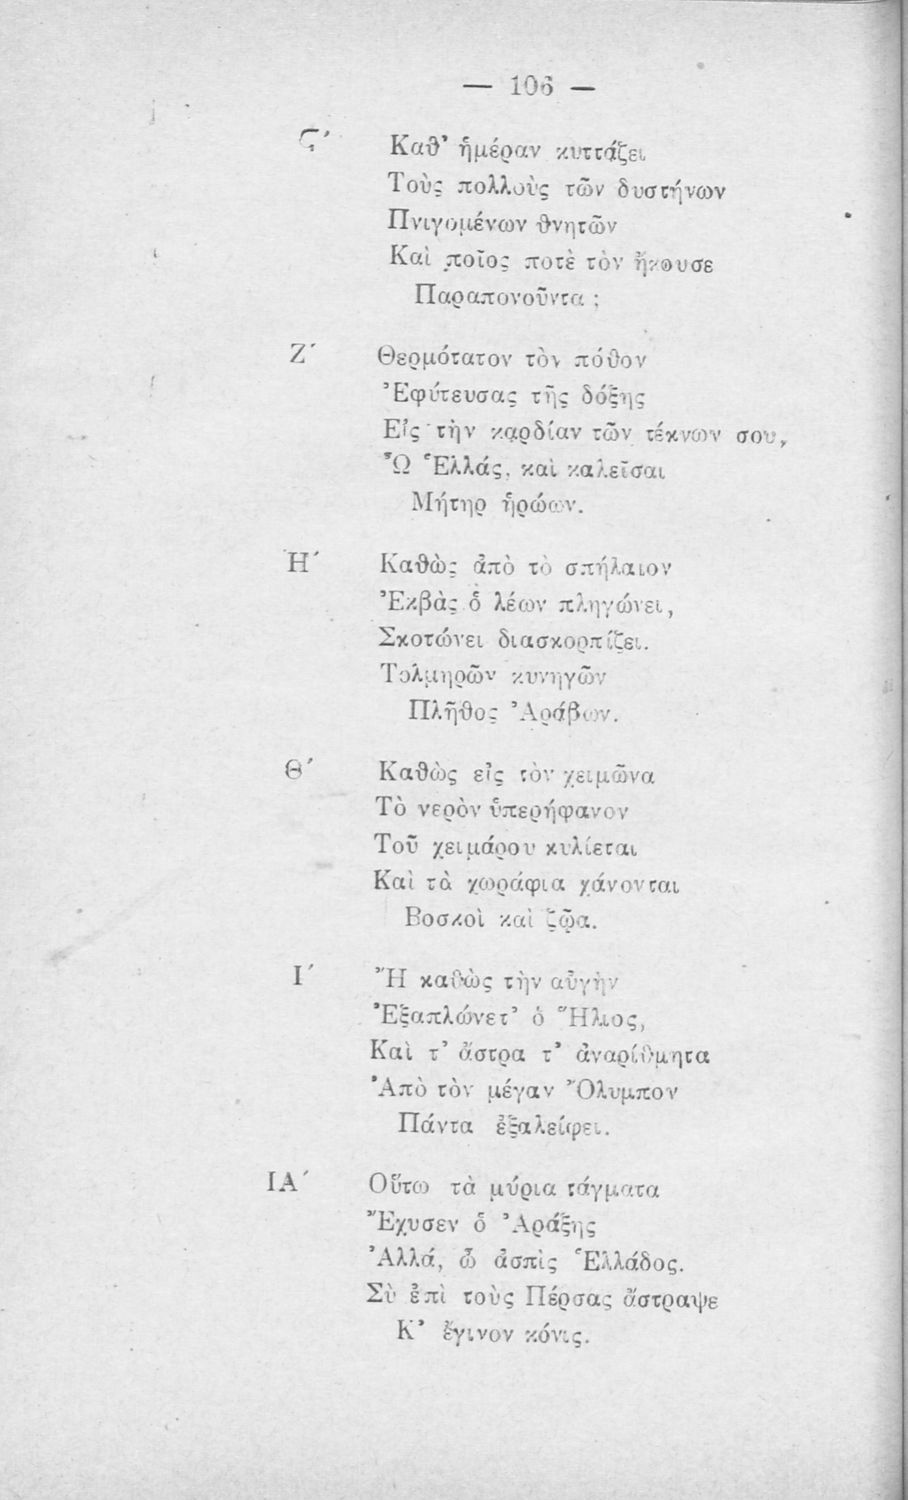 — 106 —
Ϛ΄ Καθ' ἡμέραν κυττάζει
Τοὺς πολλοὺς τῶν δυστήνων
Πνιγομένων θνητῶν
Καὶ ποῖος ποτὲ τὸν ἤκουσε
Παραπονοῦντα ;
Ζ΄ Θερμότατον τὸν πόθον
Ἐφύτευσας τῆς δόξης
Εἰς τὴν καρδίαν τῶν τέκνων σου,
Ὦ Ἑλλάς, καὶ καλεῖσαι
Μήτηρ ἡρώων.
Η΄ Καθὼς ἀπὸ τὸ σπήλαιον
Ἐκβὰς ὁ λέων πληγώνει,
Σκοτώνει διασκορπίζει.
Τολμηρῶν κυνηγῶν
Πλῆθος Ἀράβων.
Θ΄ Καθὼς εἰς τὸν χειμῶνα
Τὸ νερὸν ὑπερήφανον
Τοῦ χειμάρου κυλίεται
Καὶ τὰ χωράφια χάνονται
Βοσκοὶ καὶ ζῷα.
Ι΄ Ἢ καθὼς τὴν αὐγὴν
Ἐξαπλώνετ' ὁ Ἥλιος,
Καὶ τ' ἄστρα τ' ἀναρίθμητα
Ἀπὸ τὸν μέγαν Ὄλυμπον
Πάντα ἐξαλείφει.
ΙΑ΄ Οὕτω τὰ μύρια τάγματα
Ἔχυσεν ὁ Ἀράξης
Ἀλλά, ὦ ἀσπὶς Ἑλλάδος.
Σὺ ἐπὶ τοὺς Πέρσας ἄστραψε
Κ' ἔγινον κόνις.